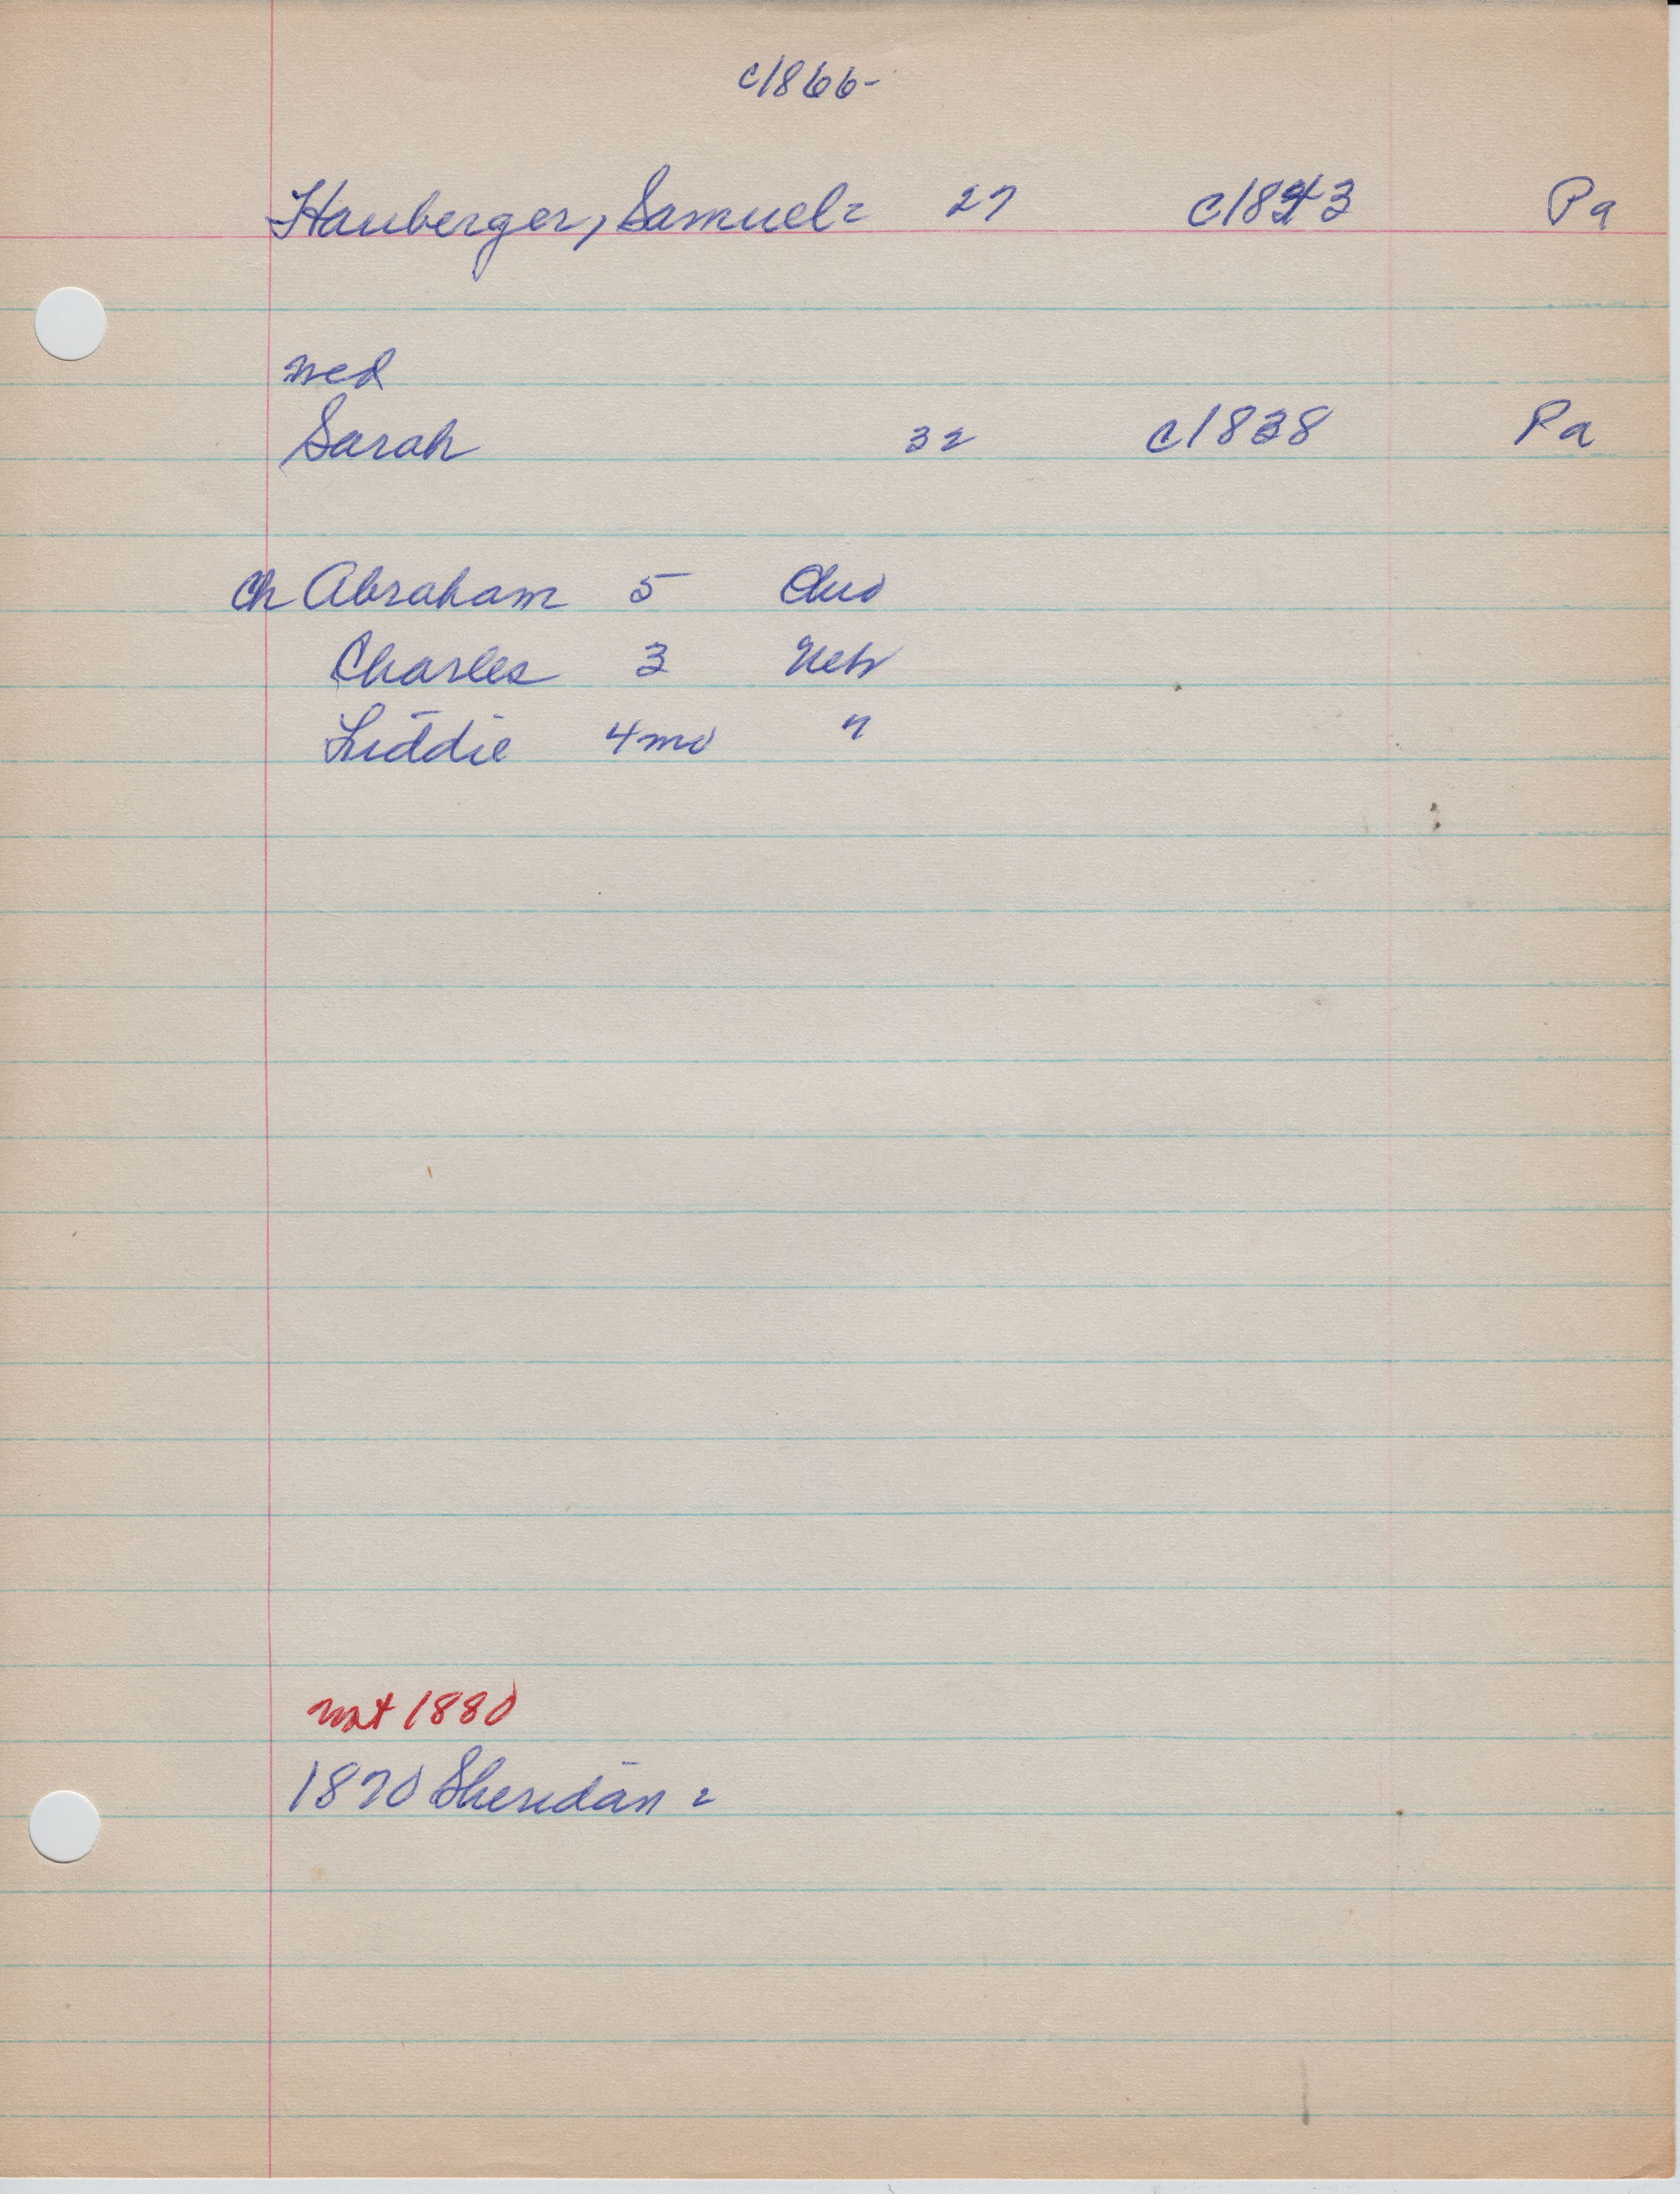 c1866-
Hauberger, Samuel= 27 c1843 Pa
med
Sarah 32 c1838 Pa
Ch Abraham 5 Ohio
Charles 3 Neb
Liddie 4mo "
not 1880
1870 Sheridan =